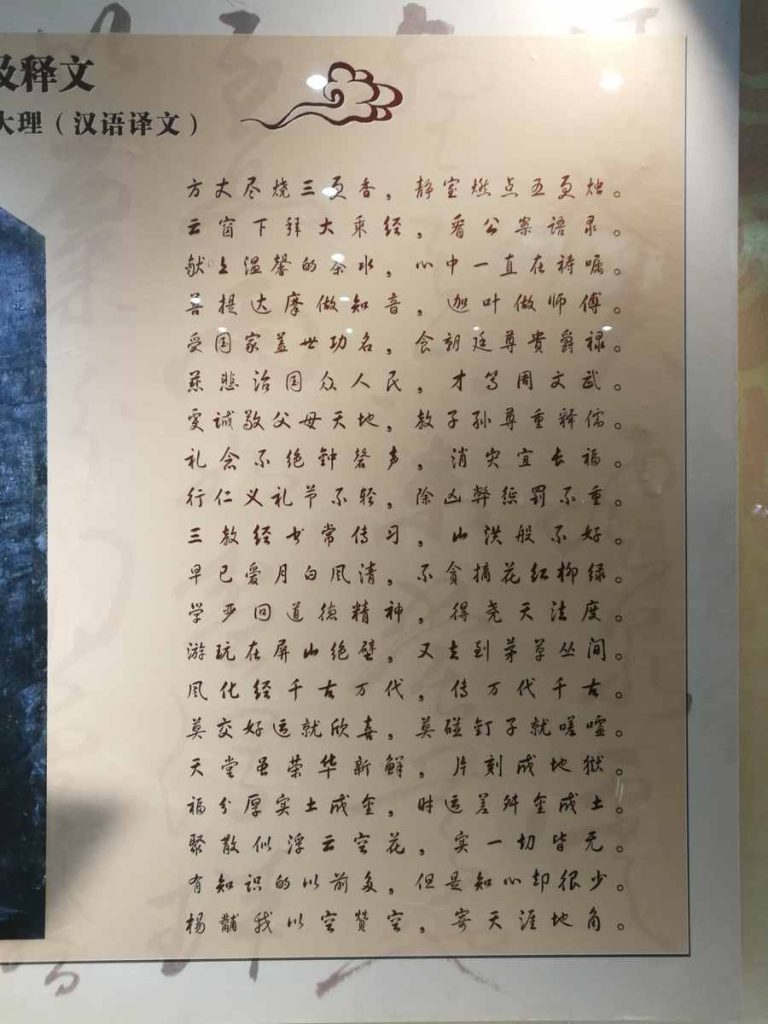 及释文
大理（汉语译文）
方丈尽烧三更香，静室燃点五更烛。
云窗下拜大乘经，看公案语录。
献上温馨的余水，心中一直在祷嘱。
菩提达摩做知音，迦叶做师傅。
受国家盖世功名，食朝廷尊贵爵禄。
慈悲治国众人民，才等周文武。
要诚敬父母天地，教子孙尊重释儒。
礼念不绝钟磬声，消灾宜长福。
行仁义礼节不轻，除凶弊惩罚不重。
三教经书常传习，山洪般不好。
早已爱月白风清，不贪摘花红柳绿。
学严回道德精神，得尧天法度。
游玩在屏山绝壁，又去到茅草丛间。
风化经千古万代，传万代千古。
莫交好运就欣喜，莫碰钉子就嗟嘘。
天堂虽荣华新鲜，片刻成地狱。
福分厚实土成金，时运差舛金成土。
聚散似浮云空花，实一切皆无。
有知识的以前多，但是知心却很少。
杨黼我以空赞空，寄天涯地角。